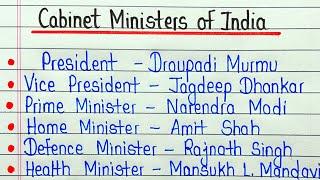 Cabinet Ministers of India
President - Draupadi Murmu
Vice President - Jagdeep Dhankar
Prime Minister - Narendra Modi
Home Minister - Amit Shah
Defence Minister - Rajnath Singh
Health Minister - Mansukh L. Mandavi